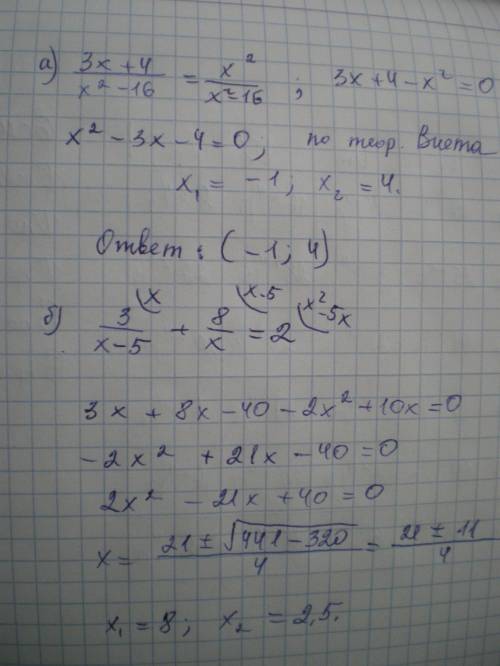 а) (3x+4)/(x²-16) = x²/(x²-16) ; 3x+4-x²=0
x²-3x-4=0; по теор. Виета
x₁= -1; x₂=4.
Ответ: (-1; 4)
б) 3/(x-5) + 8/x = 2 x x-5 x²-5x
3x+8x-40-2x²+10x=0
-2x²+21x-40=0
2x²-21x+40=0
x= (21±√(441-320))/4 = (21±11)/4
x₁=8; x₂=2,5.